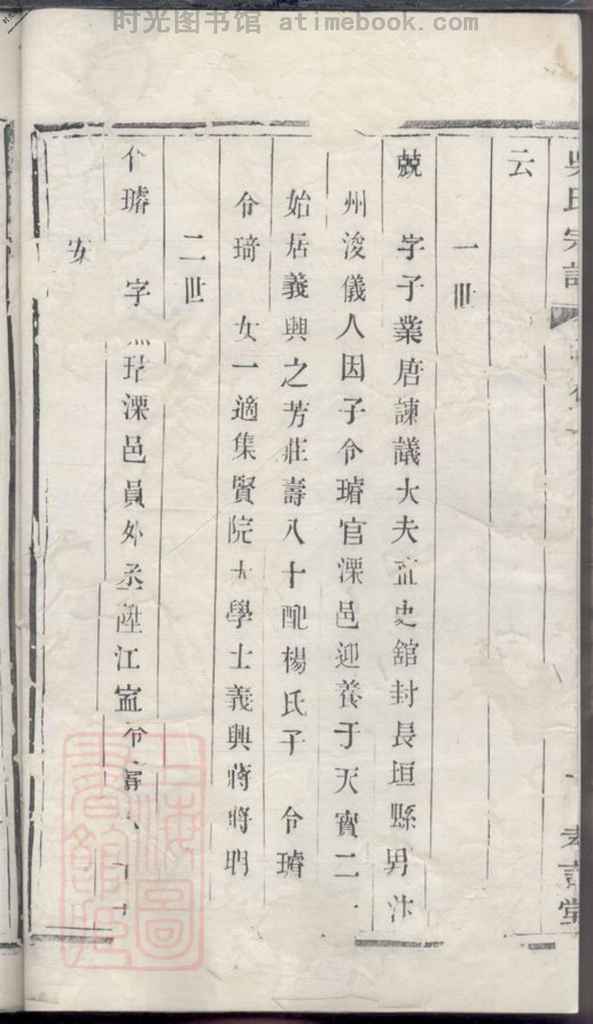 时光图书馆 atimebook.com
吳氏宗譜
云
一世
兢 字子業唐諫議大夫直史舘封長垣縣男汴
州浚儀人因子令瑃官溧邑迎養于天寳二
始居義興之芳莊壽八十配楊氏子 令瑃
令琦 女一適集賢院大學士義興蔣將明
二世
令瑃 字 溧邑員外丞陞江寧令
上海圖
書館藏